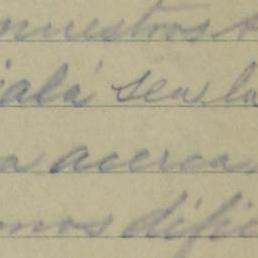 nuestros
alá sea la
a acerca
mos difíc